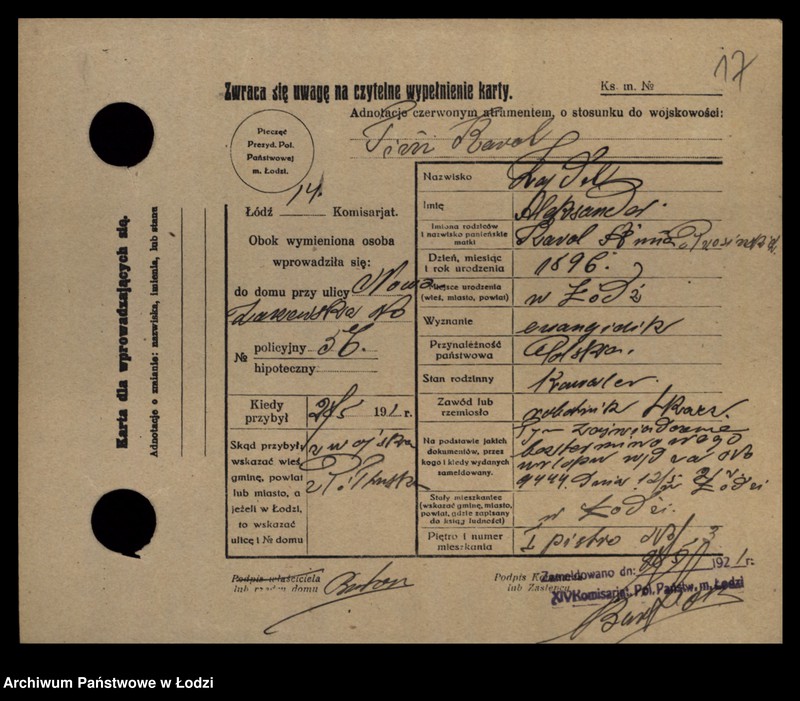 17
Zwraca się uwagę na czytelne wypełnienie karty.
Ks. m. №
Adnotacje czerwonym atramentem, o stosunku do wojskowości:
Karol
Pieczęć
Prezyd. Pol.
Państwowej
m. Łodzi.
Łódź 14. Komisarjat.
Obok wymieniona osoba
wprowadziła się:
do domu przy ulicy Nowo
Zarzewska №
№ policyjny 56.
hipoteczny
Kiedy przybył 28/5 1921 r.
Skąd przybył, z wojska
wskazać wieś,
gminę, powiat z Pułtuska
lub miasto, a
jeżeli w Łodzi,
to wskazać
ulicę i № domu
Nazwisko
Imię Aleksander.
Imiona rodziców
i nazwisko panieńskie
matki Karol Anna
Dzień, miesiąc
i rok urodzenia 1896.
Miejsce urodzenia
(wieś, miasto, powiat) w Łodzi
Wyznanie
Przynależność
państwowa Polska.
Stan rodzinny Kawaler.
Zawód lub
rzemiosło robotnik tkacz.
Na podstawie jakich
dokumentów, przez
kogo i kiedy wydanych
zameldowany. Tym. zaświadczenie
bezterminowego
urlopu wyd za №
9444. Dnia 12/5 Łodzi
Stały mieszkaniec
(wskazać gminę, miasto,
powiat, gdzie zapisany
do ksiąg ludności) w Łodzi.
Piętro i numer
mieszkania I piętro № 3
Podpis właściciela
lub rządcy domu
Podpis
lub Zastępcy
Zameldowano dn: 28/5 1921 r.
XIV Komisarjat Pol. Państw. m. Łodzi
Karta dla wprowadzających się.
Adnotacje o zmianie: nazwiska, imienia, lub stanu
Archiwum Państwowe w Łodzi